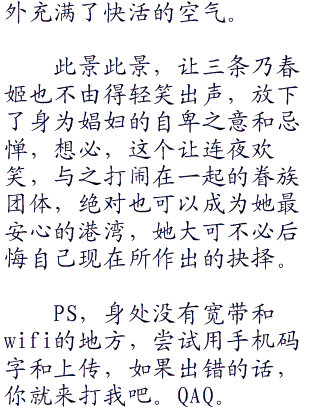 外充满了快活的空气。
此景此景，让三条乃春
姬也不由得轻笑出声，放下
了身为娼妇的自卑之意和忌
惮，想必，这个让连夜欢
笑，与之打闹在一起的眷族
团体，绝对也可以成为她最
安心的港湾，她大可不必后
悔自己现在所作出的抉择。
PS，身处没有宽带和
wifi的地方，尝试用手机码
字和上传，如果出错的话，
你就来打我吧。QAQ。